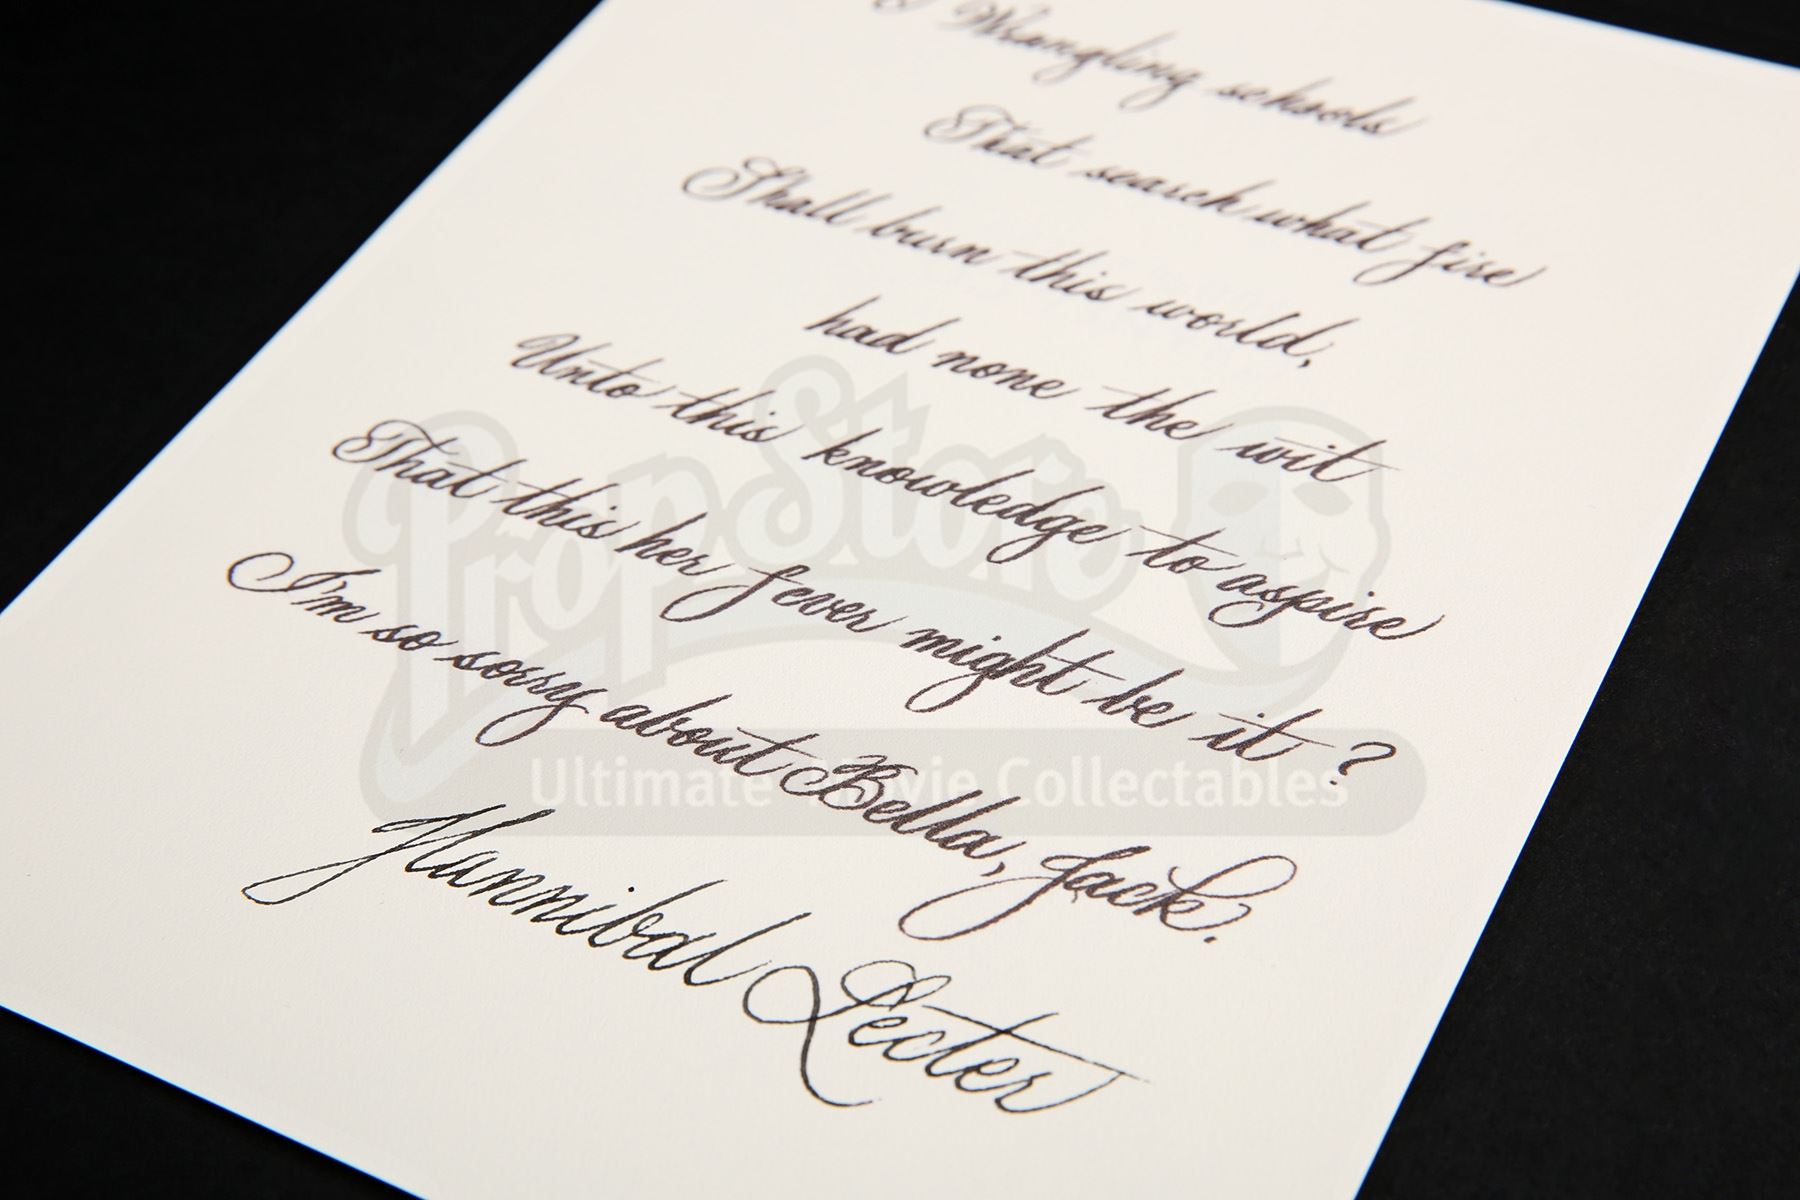 O Wrangling schools
That search what fire
Shall burn this world,
had none the wit
Unto this knowledge to aspire
That this her fever might be it?
I'm so sorry about Bella, Jack.
Hannibal Lecter
Prop Store
Ultimate Movie Collectables